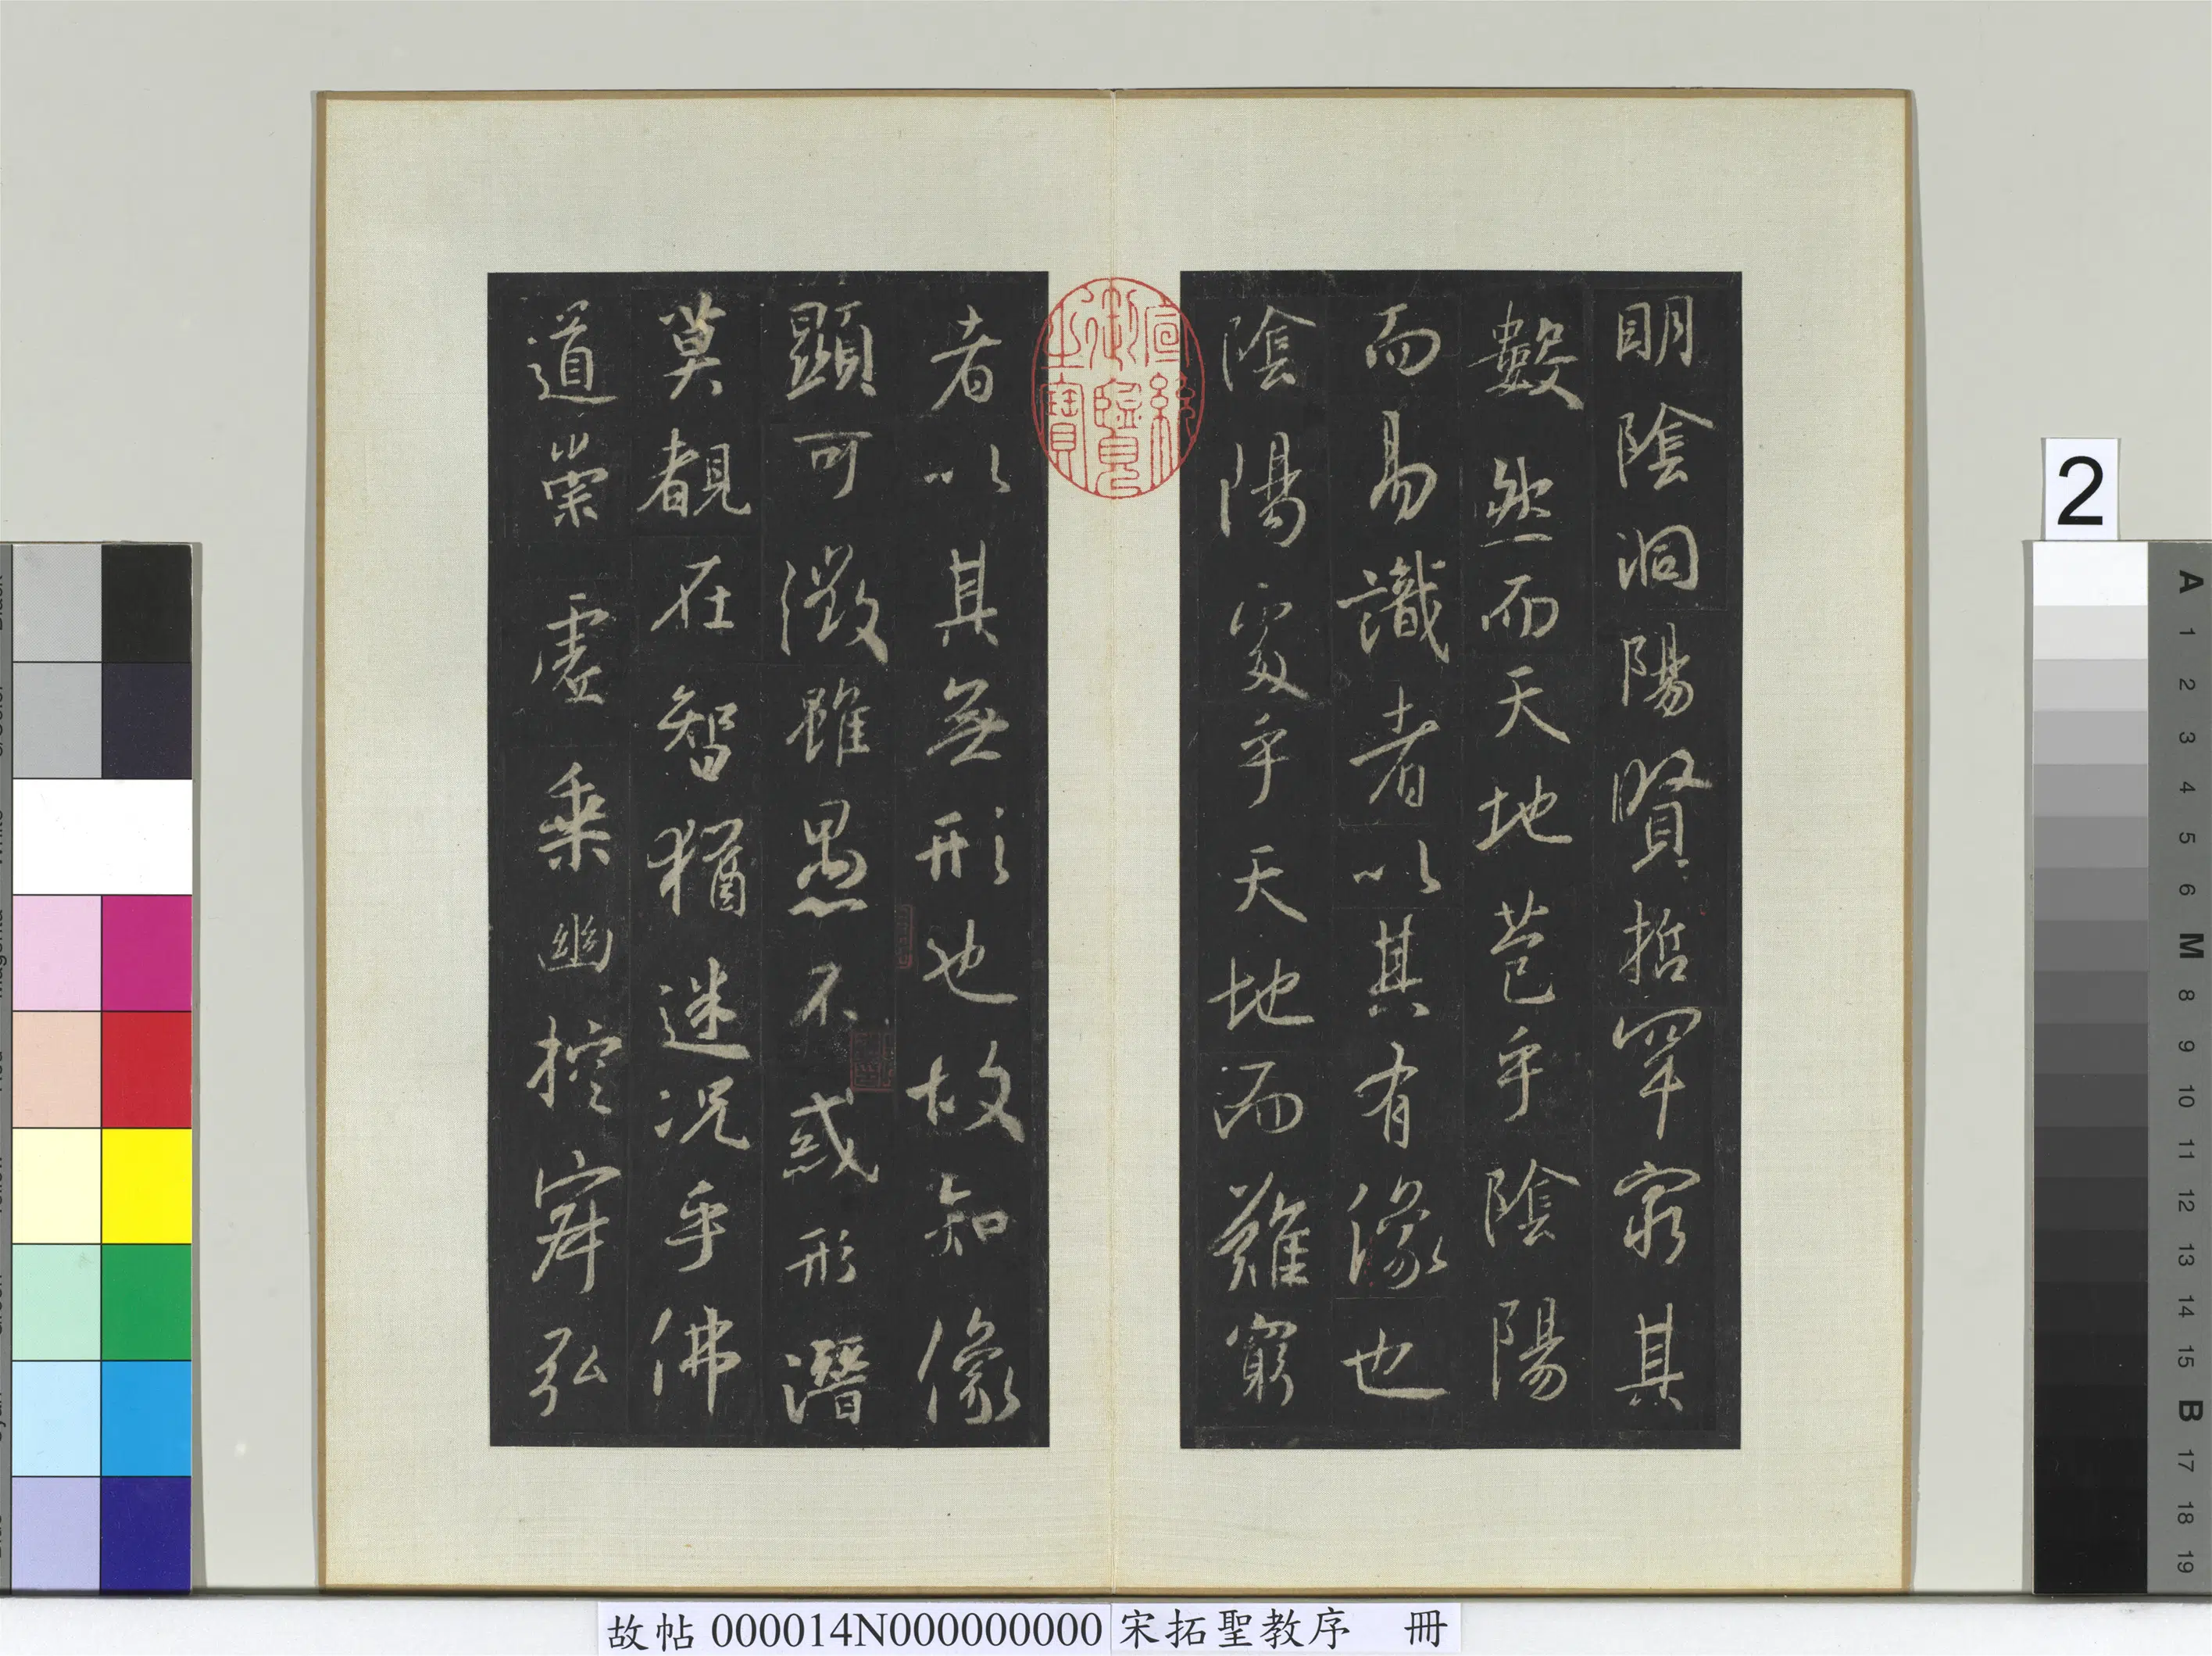 明陰洞陽賢哲罕窮其
數然而天地苞乎陰陽
而易識者以其有像也
陰陽處乎天地而難窮
者以其無形也故知像
顯可徵雖愚不惑形潛
莫覩在智猶迷况乎佛
道崇虛乘幽控寂弘
宣統
御覽
之寶
2
A 1 2 3 4 5 6 M 8 9 10 11 12 13 14 15 B 17 18 19
故帖 000014N000000000 宋拓聖教序 冊